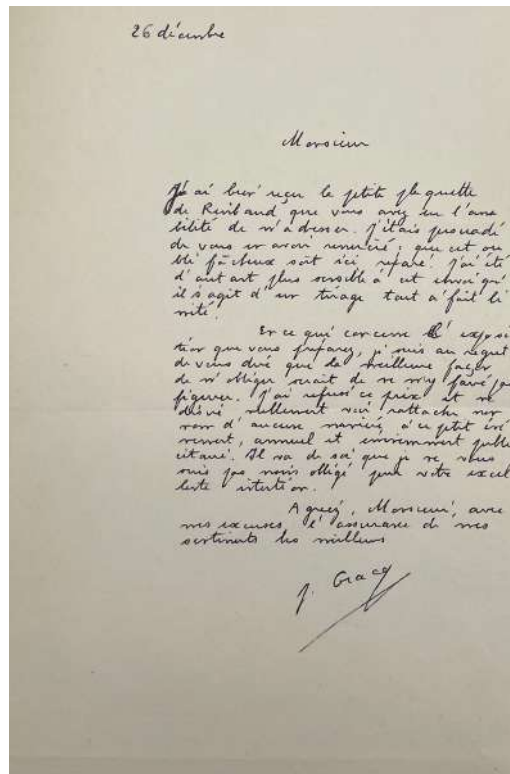 26 décembre
Monsieur
J'ai bien reçu la petite plaquette
de Rimbaud que vous avez eu l'ama
bilité de m'adresser. J'étais persuadé
de vous en avoir remercié : que cet ou
bli fâcheux soit ici réparé. J'ai été
d'autant plus sensible à cet envoi qu'
il s'agit d'un tirage tout à fait li
mité.
En ce qui concerne l'exposi
tion que vous préparez, je suis au regret
de vous dire que la meilleure façon
de m'obliger serait de ne m'y faire pas
figurer. J'ai refusé ce prix et ne
désire nullement voir rattacher mon
nom d'aucune manière à ce petit évé
nement, annuel et publi
citaire. Il va de soi que je ne vous
suis pas moins obligé pour votre excel
lente intention.
Agréez, Monsieur, avec
mes excuses, l'assurance de mes
sentiments les meilleurs
J. Gracq